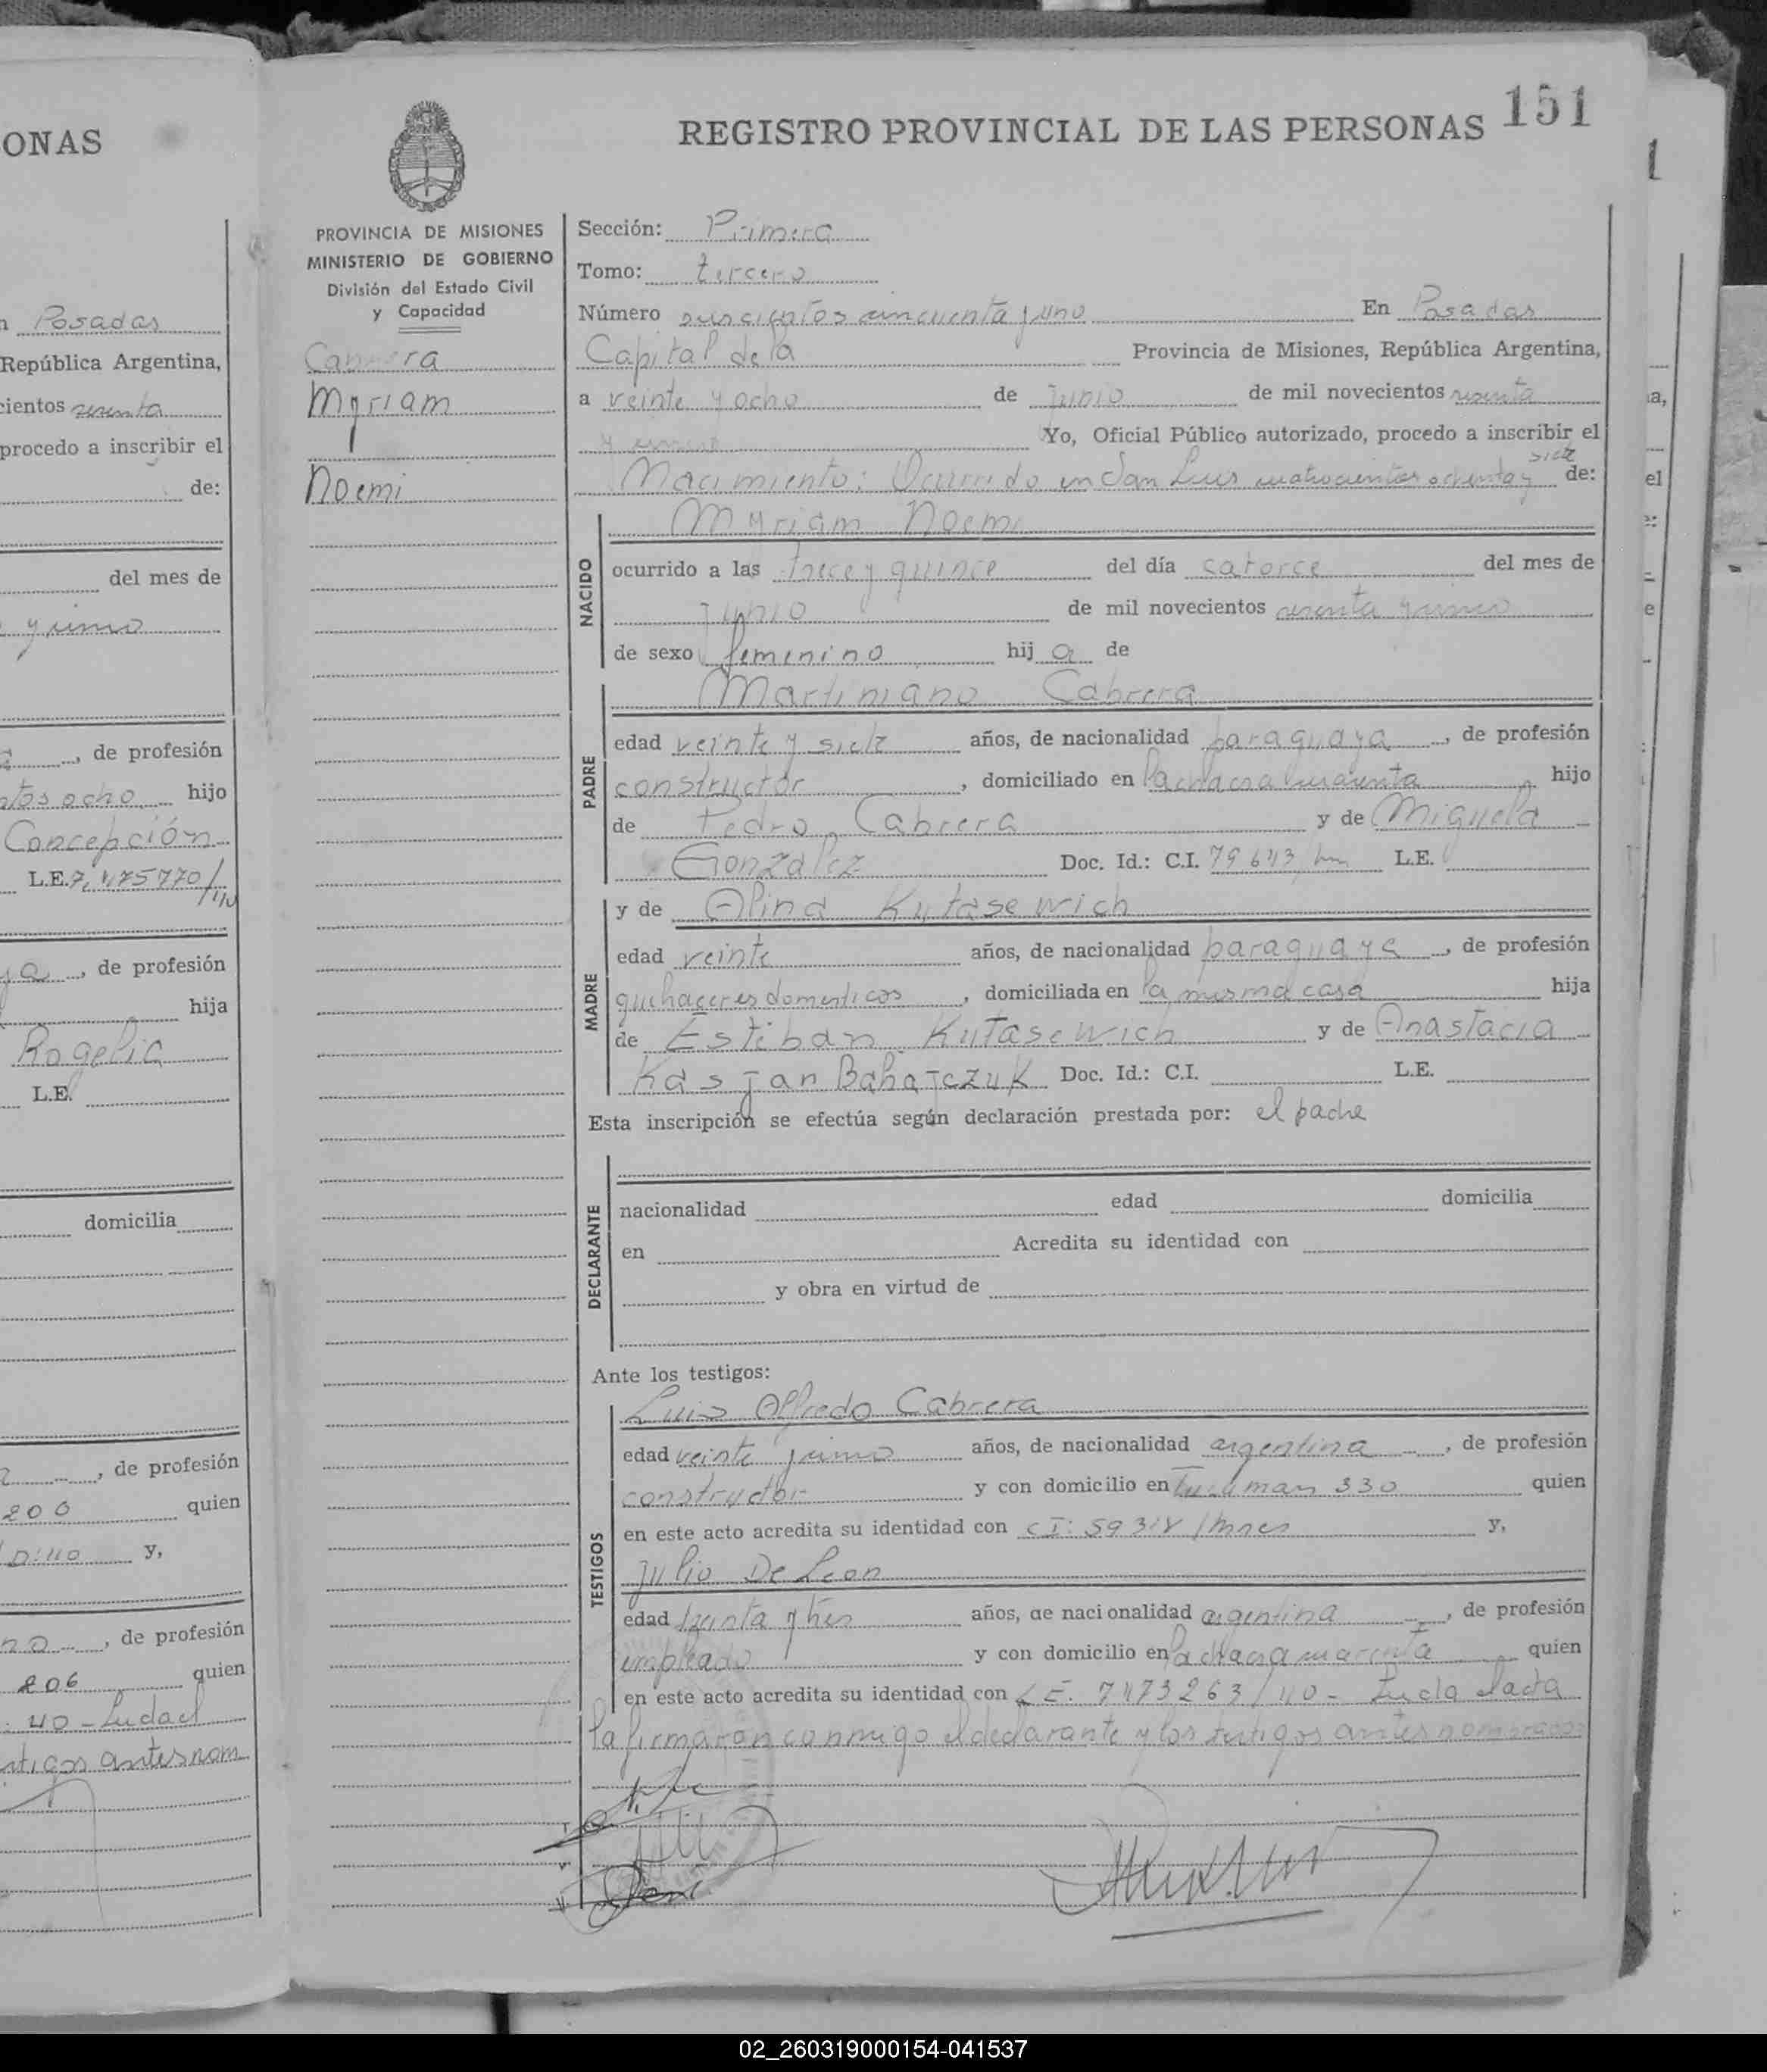 ONAS
n Posadas
República Argentina,
cientos sesenta
procedo a inscribir el
de:
del mes de
y uno
, de profesión
ntos ocho hijo
Concepción
L.E. 7.475770/
ya , de profesión
hija
Rogelia
L.E.
domicilia
, de profesión
200 quien
D:40 y,
no , de profesión
206 quien
40 - Leida el
stigos antes nom
REGISTRO PROVINCIAL DE LAS PERSONAS 151
PROVINCIA DE MISIONES
MINISTERIO DE GOBIERNO
División del Estado Civil
y Capacidad
Cabrera
Myriam
Noemi
Sección: Primera
Tomo: tercero
Número seiscientos cincuenta y uno En Posadas
Capital de la Provincia de Misiones, República Argentina,
a veinte y ocho de Junio de mil novecientos sesenta
y cinco Yo, Oficial Público autorizado, procedo a inscribir el
Nacimiento: Ocurrido en San Luis cuatrocientos ochenta y siete de:
NACIDO
Myriam Noemi
ocurrido a las trece y quince del día catorce del mes de
Junio de mil novecientos sesenta y cinco
de sexo femenino hij a de
PADRE
Martiniano Cabrera
edad veinte y siete años, de nacionalidad paraguaya , de profesión
constructor , domiciliado en la chacra cuarenta hijo
de Pedro Cabrera y de Miguela
González Doc. Id.: C.I. 79643/ L.E.
MADRE
y de Alina Kutasewich
edad veinte años, de nacionalidad paraguaya , de profesión
quehaceres domesticos , domiciliada en la misma casa hija
de Esteban Kutasewich y de Anastacia
Kasjan Bahajczuk Doc. Id.: C.I. L.E.
Esta inscripción se efectúa según declaración prestada por: el padre
DECLARANTE
nacionalidad edad domicilia
en Acredita su identidad con
y obra en virtud de
Ante los testigos:
TESTIGOS
Luis Alfredo Cabrera
edad veinte y uno años, de nacionalidad argentina , de profesión
constructor y con domicilio en Tucuman 330 quien
en este acto acredita su identidad con CI: /Mnes y,
Julio De Leon
edad treinta y tres años, de nacionalidad argentina , de profesión
empleado y con domicilio en la chacra cuarenta quien
en este acto acredita su identidad con L.E. 7473263/40 - Leida el acta
la firmaron conmigo el declarante y los testigos antes nombrados
02_260319000154-041537